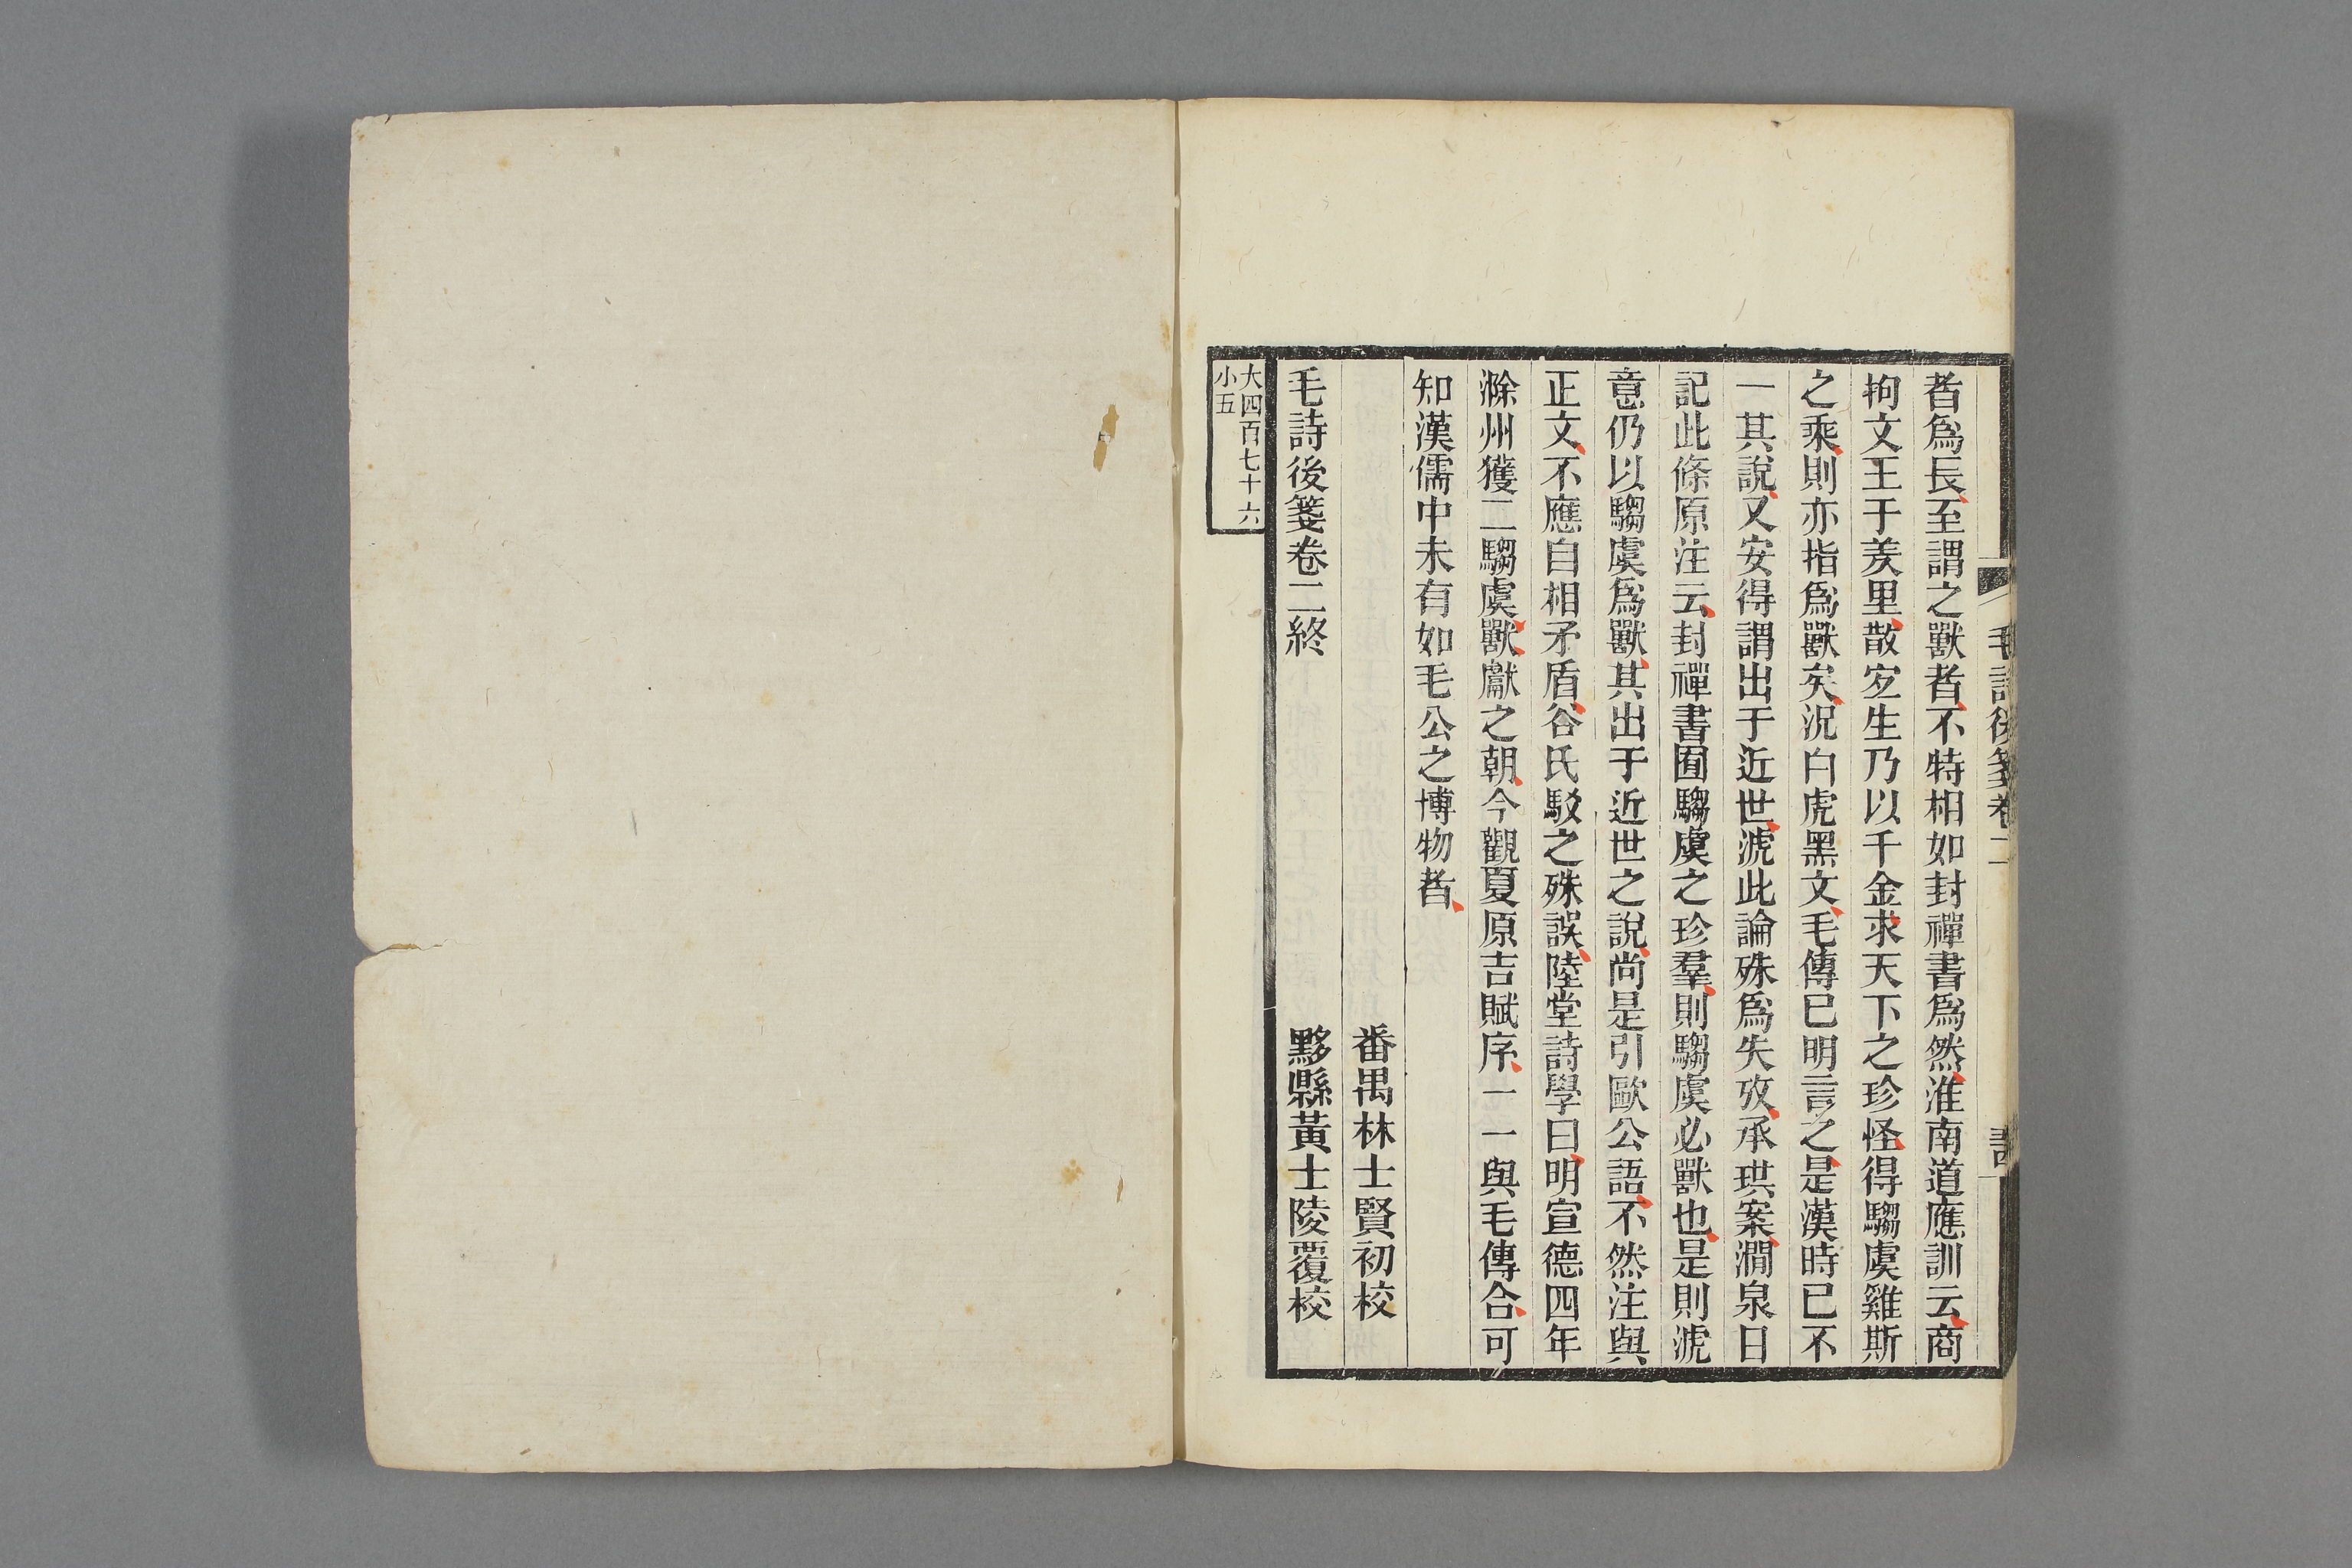 毛詩後箋卷二
者爲長至謂之獸者不特相如封禪書爲然淮南道應訓云商
拘文王于羑里散宜生乃以千金求天下之珍怪得騶虞雞斯
之乘則亦指爲獸矣況白虎黑文毛傳已明言之是漢時已不
一其說又安得謂出于近世淲此論殊爲失攷承珙案澗泉日
記此條原注云封禪書囿騶虞之珍羣則騶虞必獸也是則淲
意仍以騶虞爲獸其出于近世之說尚是引歐公語不然注與
正文不應自相矛盾谷氏駮之殊誤陸堂詩學曰明宣德四年
滁州獲二騶虞獸獻之朝今觀夏原吉賦序一一與毛傳合可
知漢儒中未有如毛公之博物者
番禺林士賢初校
毛詩後箋卷二終
黟縣黃士陵覆校
大四百七十六
小五